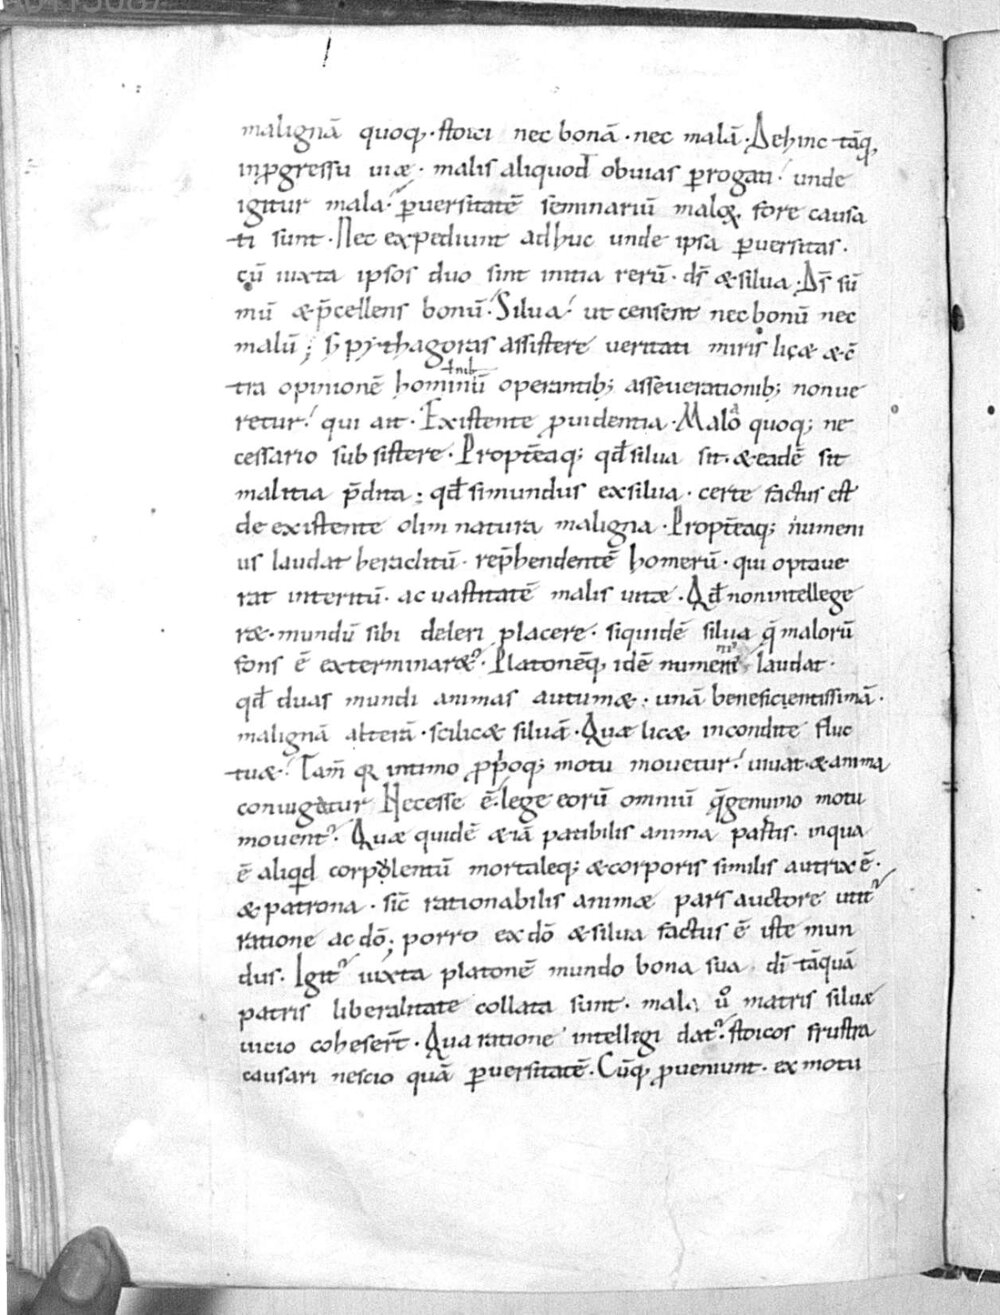 malignā quoq; · stoici nec bonā · nec malā · Dehinc tāq,
inp̱gressu uiæ · malis aliquod obuias ꝑrogati · unde
igitur mala · ꝑuersitatē seminariū maloꝝ fore causa
ti sunt · Nec expediunt adhuc unde ipsa ꝑuersitas ·
cū iuxta ipsos duo sint initia rerū · ds̄ & silua · Ds̄ sū
mū & p̄cellens bonū · Silua · ut censent nec bonū nec
malū ; s; pythagoras assistere ueritati miris licæ & c̄
tra opinionē hominū operantib; asseuerationib; non ue
retur · qui ait · Existente ꝓuidentia · Mala quoq; ne
cessario subsistere · Propt̄eaq; qđ silua sit · & eadē sit
malitia p̄dita ; qđ si mundus ex silua · certe factus est
de existente olim natura maligna · Propt̄eaq; numeni
us laudat heraclitū · rep̄hendentē homerū · qui optaue
rat interitū · ac uastitatē malis uitæ · Qđ non intellege
ræ · mundū sibi deleri placere · siquidē silua q̄ malorū
fons ē exterminaræ · Platonēq, idē numeni laudat ·
qđ duas mundi animas autumæ ; unā beneficientissimā ·
malignā alterā · scilicæ siluā · Quæ licæ incondite fluc
tuæ · Tam̄ intimo ꝓp̱oq; motu mouetur · uiuat & anima
conuigetur Necesse ē · lege eorū omniū q̄ genuino motu
mouent · Quæ quidē & iā patibilis anima partis · inqua
ē aliqđ corpolentū mortaleq; & corporis similis autrix ē ·
& patrona · sic̄ rationabilis animæ pars auctore utit
ratione ac dō ; porro ex dō & silua factus ē iste mun
dus · Igit iuxta platonē mundo bona sua di tāquā
patris liberalitate collata sunt · mala ū matris siluæ
uicio cohesert̄ · Qua ratione intelligi dat · stoicos frustra
causari nescio quā ꝑuersitatē · Cūq, ꝓueniunt · ex motu